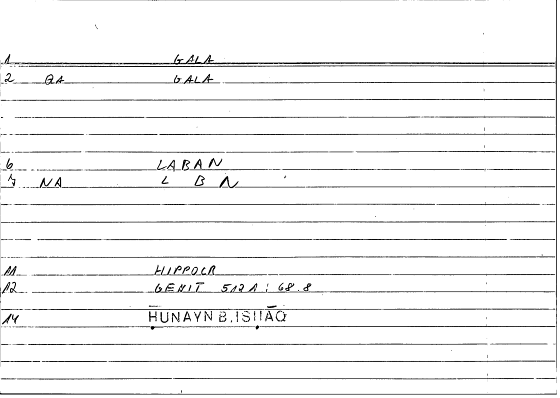 1 GALA
2 GA GALA
6 LABAN
7 NA L B N
11 HIPPOCR
12 GENIT 512A: 68.8
14 ḤUNAYN B. ISḤĀQ